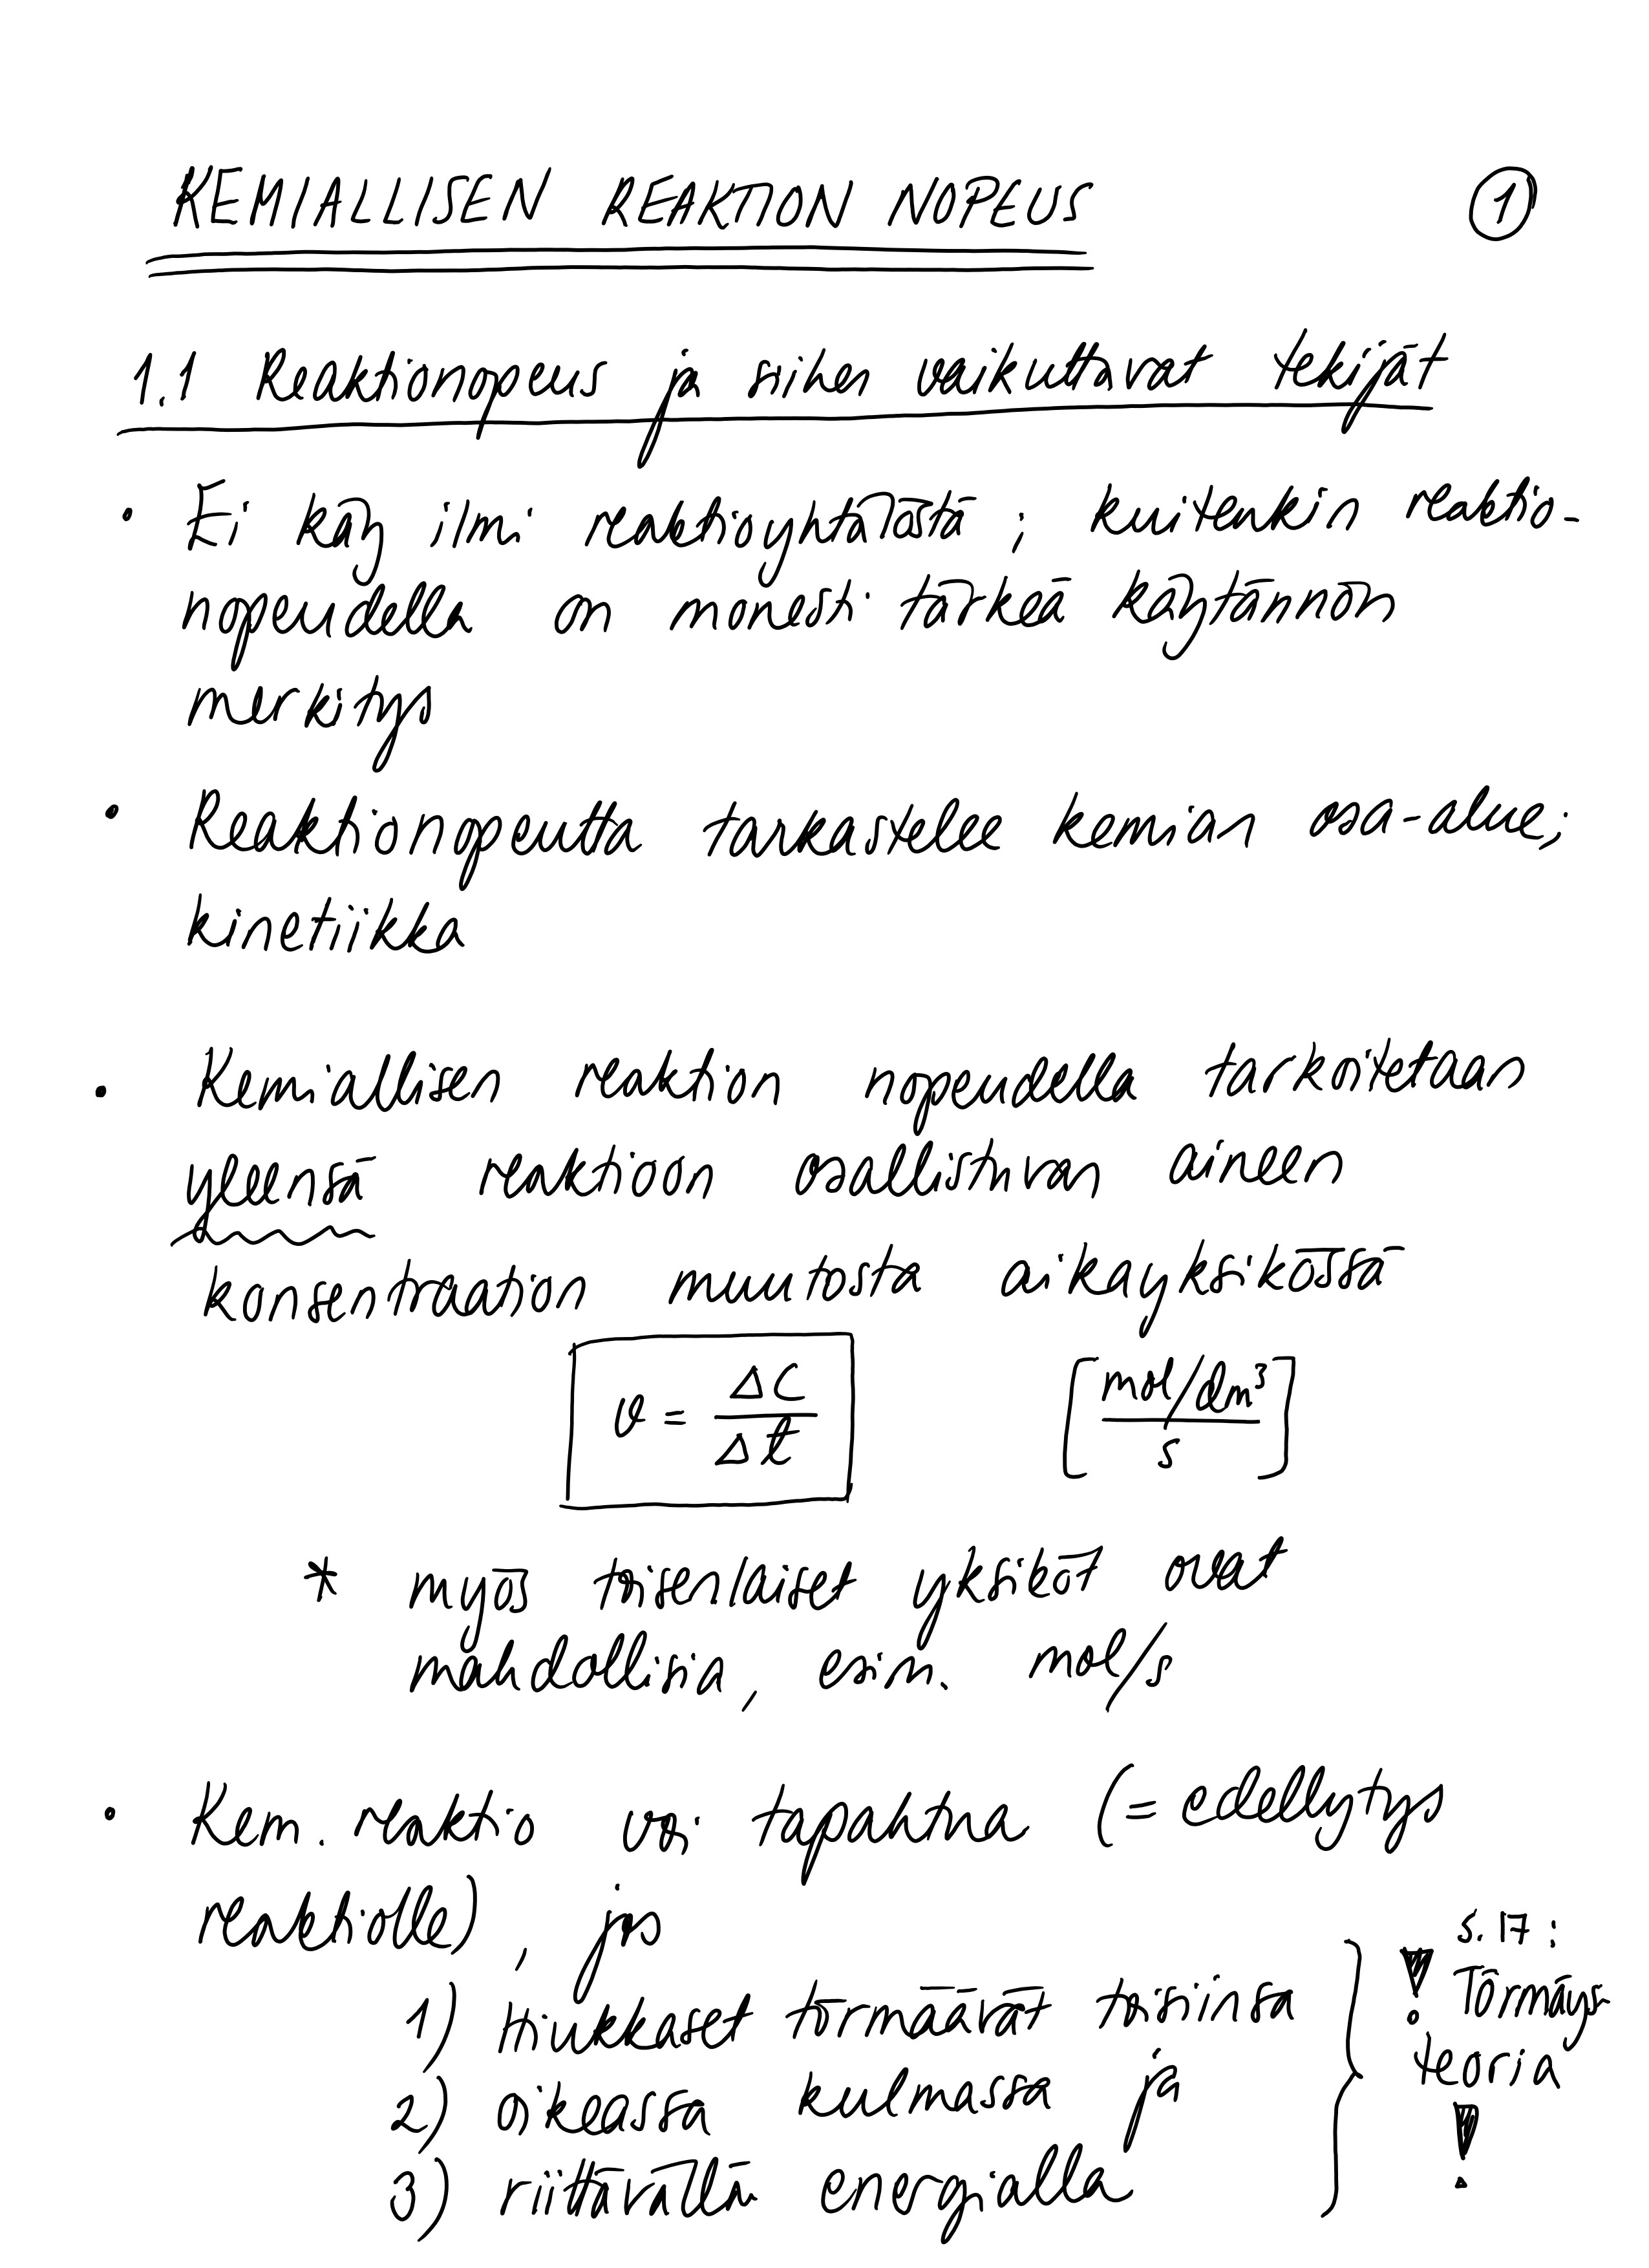 KEMIALLISEN REAKTION NOPEUS
1
1.1 Reaktionopeus ja siihen vaikuttavat tekijät
• Ei käy ilmi reaktioyhtälöstä ; kuitenkin reaktio-
nopeudella on monesti tärkeä käytännön
merkitys
• Reaktionopeutta tarkastelee kemian osa-alue;
kinetiikka
• Kemiallisen reaktion nopeudella tarkoitetaan
yleensä reaktioon osallistuvan aineen
konsentraation muutosta aikayksikössä
v = Δc/Δt [mol/dm³ / s]
* myös toisenlaiset yksiköt ovat
mahdollisia, esim. mol/s
• Kem. reaktio voi tapahtua (= edellytys
reaktiolle), jos
1) Hiukkaset törmäävät toisiinsa
2) oikeassa kulmassa ja
3) riittävällä energialla
s. 17 :
! Törmäys-
teoria
!